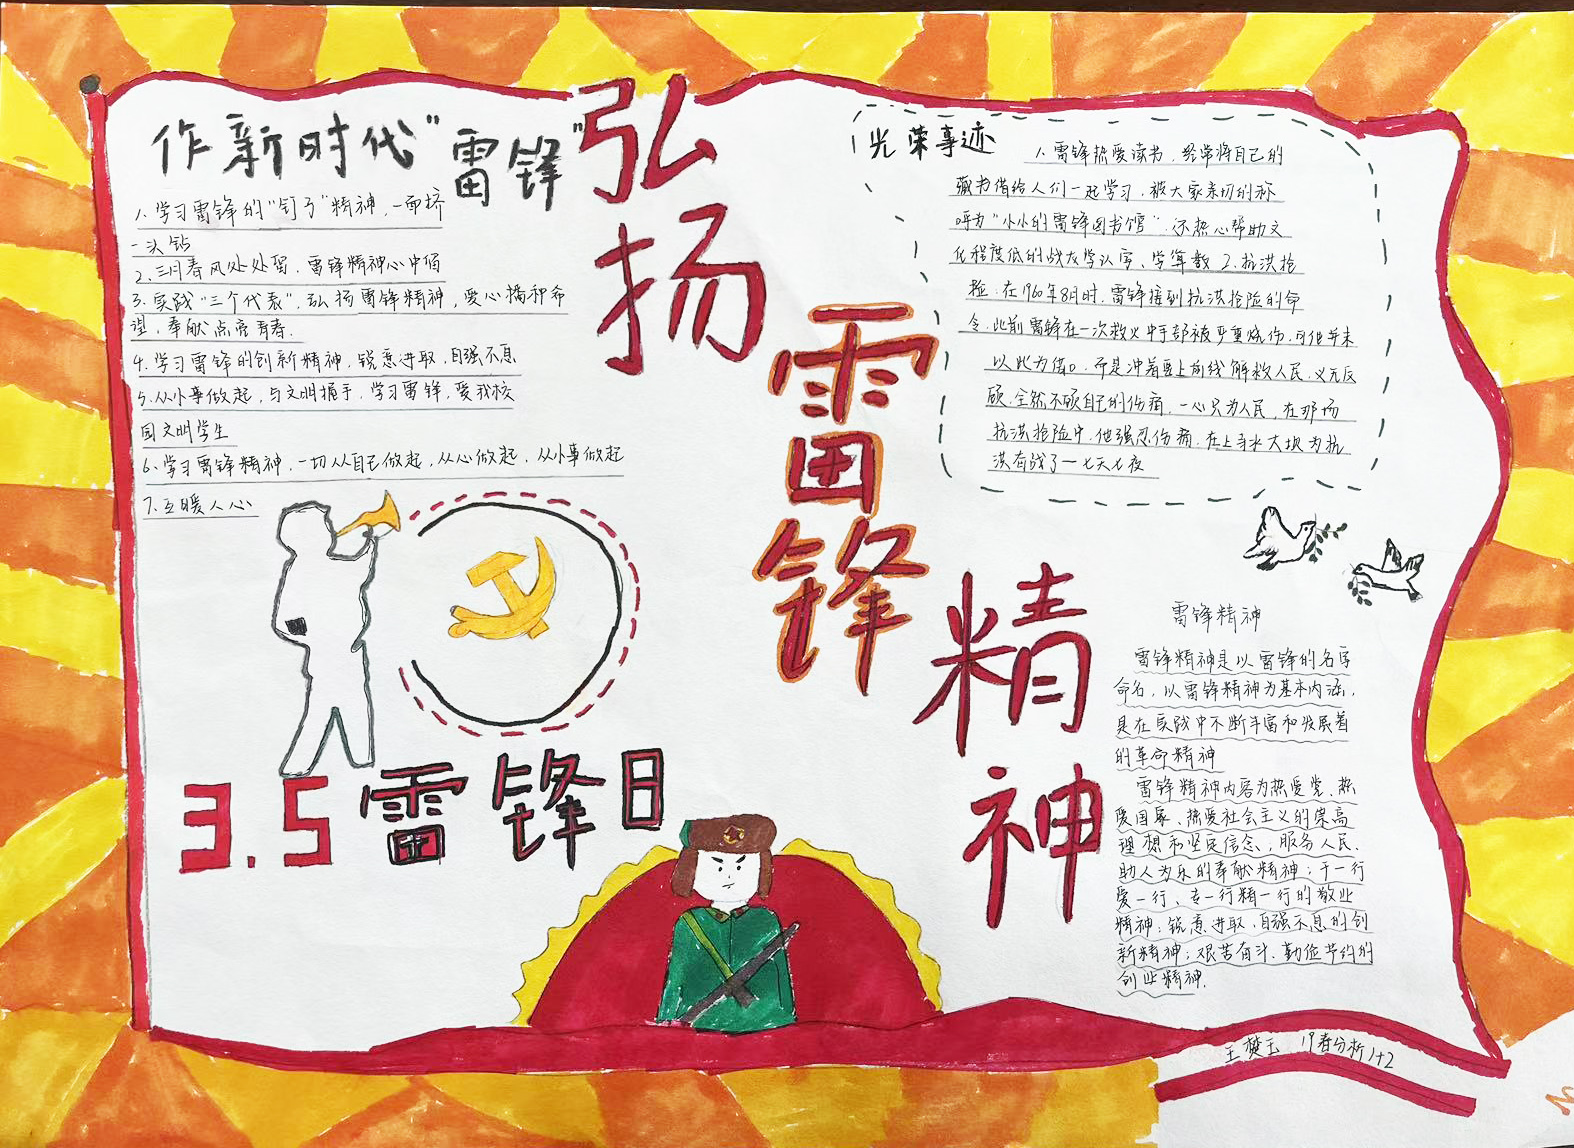 作新时代“雷锋”
1、学习雷锋的“钉子”精神，一面挤
一头钻
2、三月春风处处留，雷锋精神心中留
3、实践“三个代表”，弘扬雷锋精神，爱心播种希
望，奉献点亮青春.
4、学习雷锋的创新精神，锐意进取，自强不息
5、从小事做起，与文明握手，学习雷锋，爱我校
园文明学生
6、学习雷锋精神，一切从自己做起，从心做起，从小事做起
7、互暖人心
弘扬
雷锋
精神
3.5雷锋日
光荣事迹
1、雷锋热爱读书，经常将自己的
藏书借给人们一起学习，被大家亲切的称
呼为“小小的雷锋图书馆”.还热心帮助文
化程度低的战友学认字、学算数 2、抗洪抢
险：在1960年8月时，雷锋接到抗洪抢险的命
令，此前雷锋在一次救火中手部被严重烧伤，可他并未
以此为借口，而是冲着要上前线解救人民，义无反
顾，全然不顾自己的伤痛，一心只为人民，在那场
抗洪抢险中，他强忍伤痛，在上寺水大坝为抗
洪奋战了一七天七夜
雷锋精神
雷锋精神是以雷锋的名字
命名，以雷锋精神为基本内涵，
是在实践中不断丰富和发展着
的革命精神
雷锋精神内容为热爱党、热
爱国家、热爱社会主义的崇高
理想和坚定信念，服务人民、
助人为乐的奉献精神；干一行
爱一行、专一行精一行的敬业
精神；锐意进取、自强不息的创
新精神；艰苦奋斗、勤俭节约的
创业精神.
王樊玉 19春分析1+2